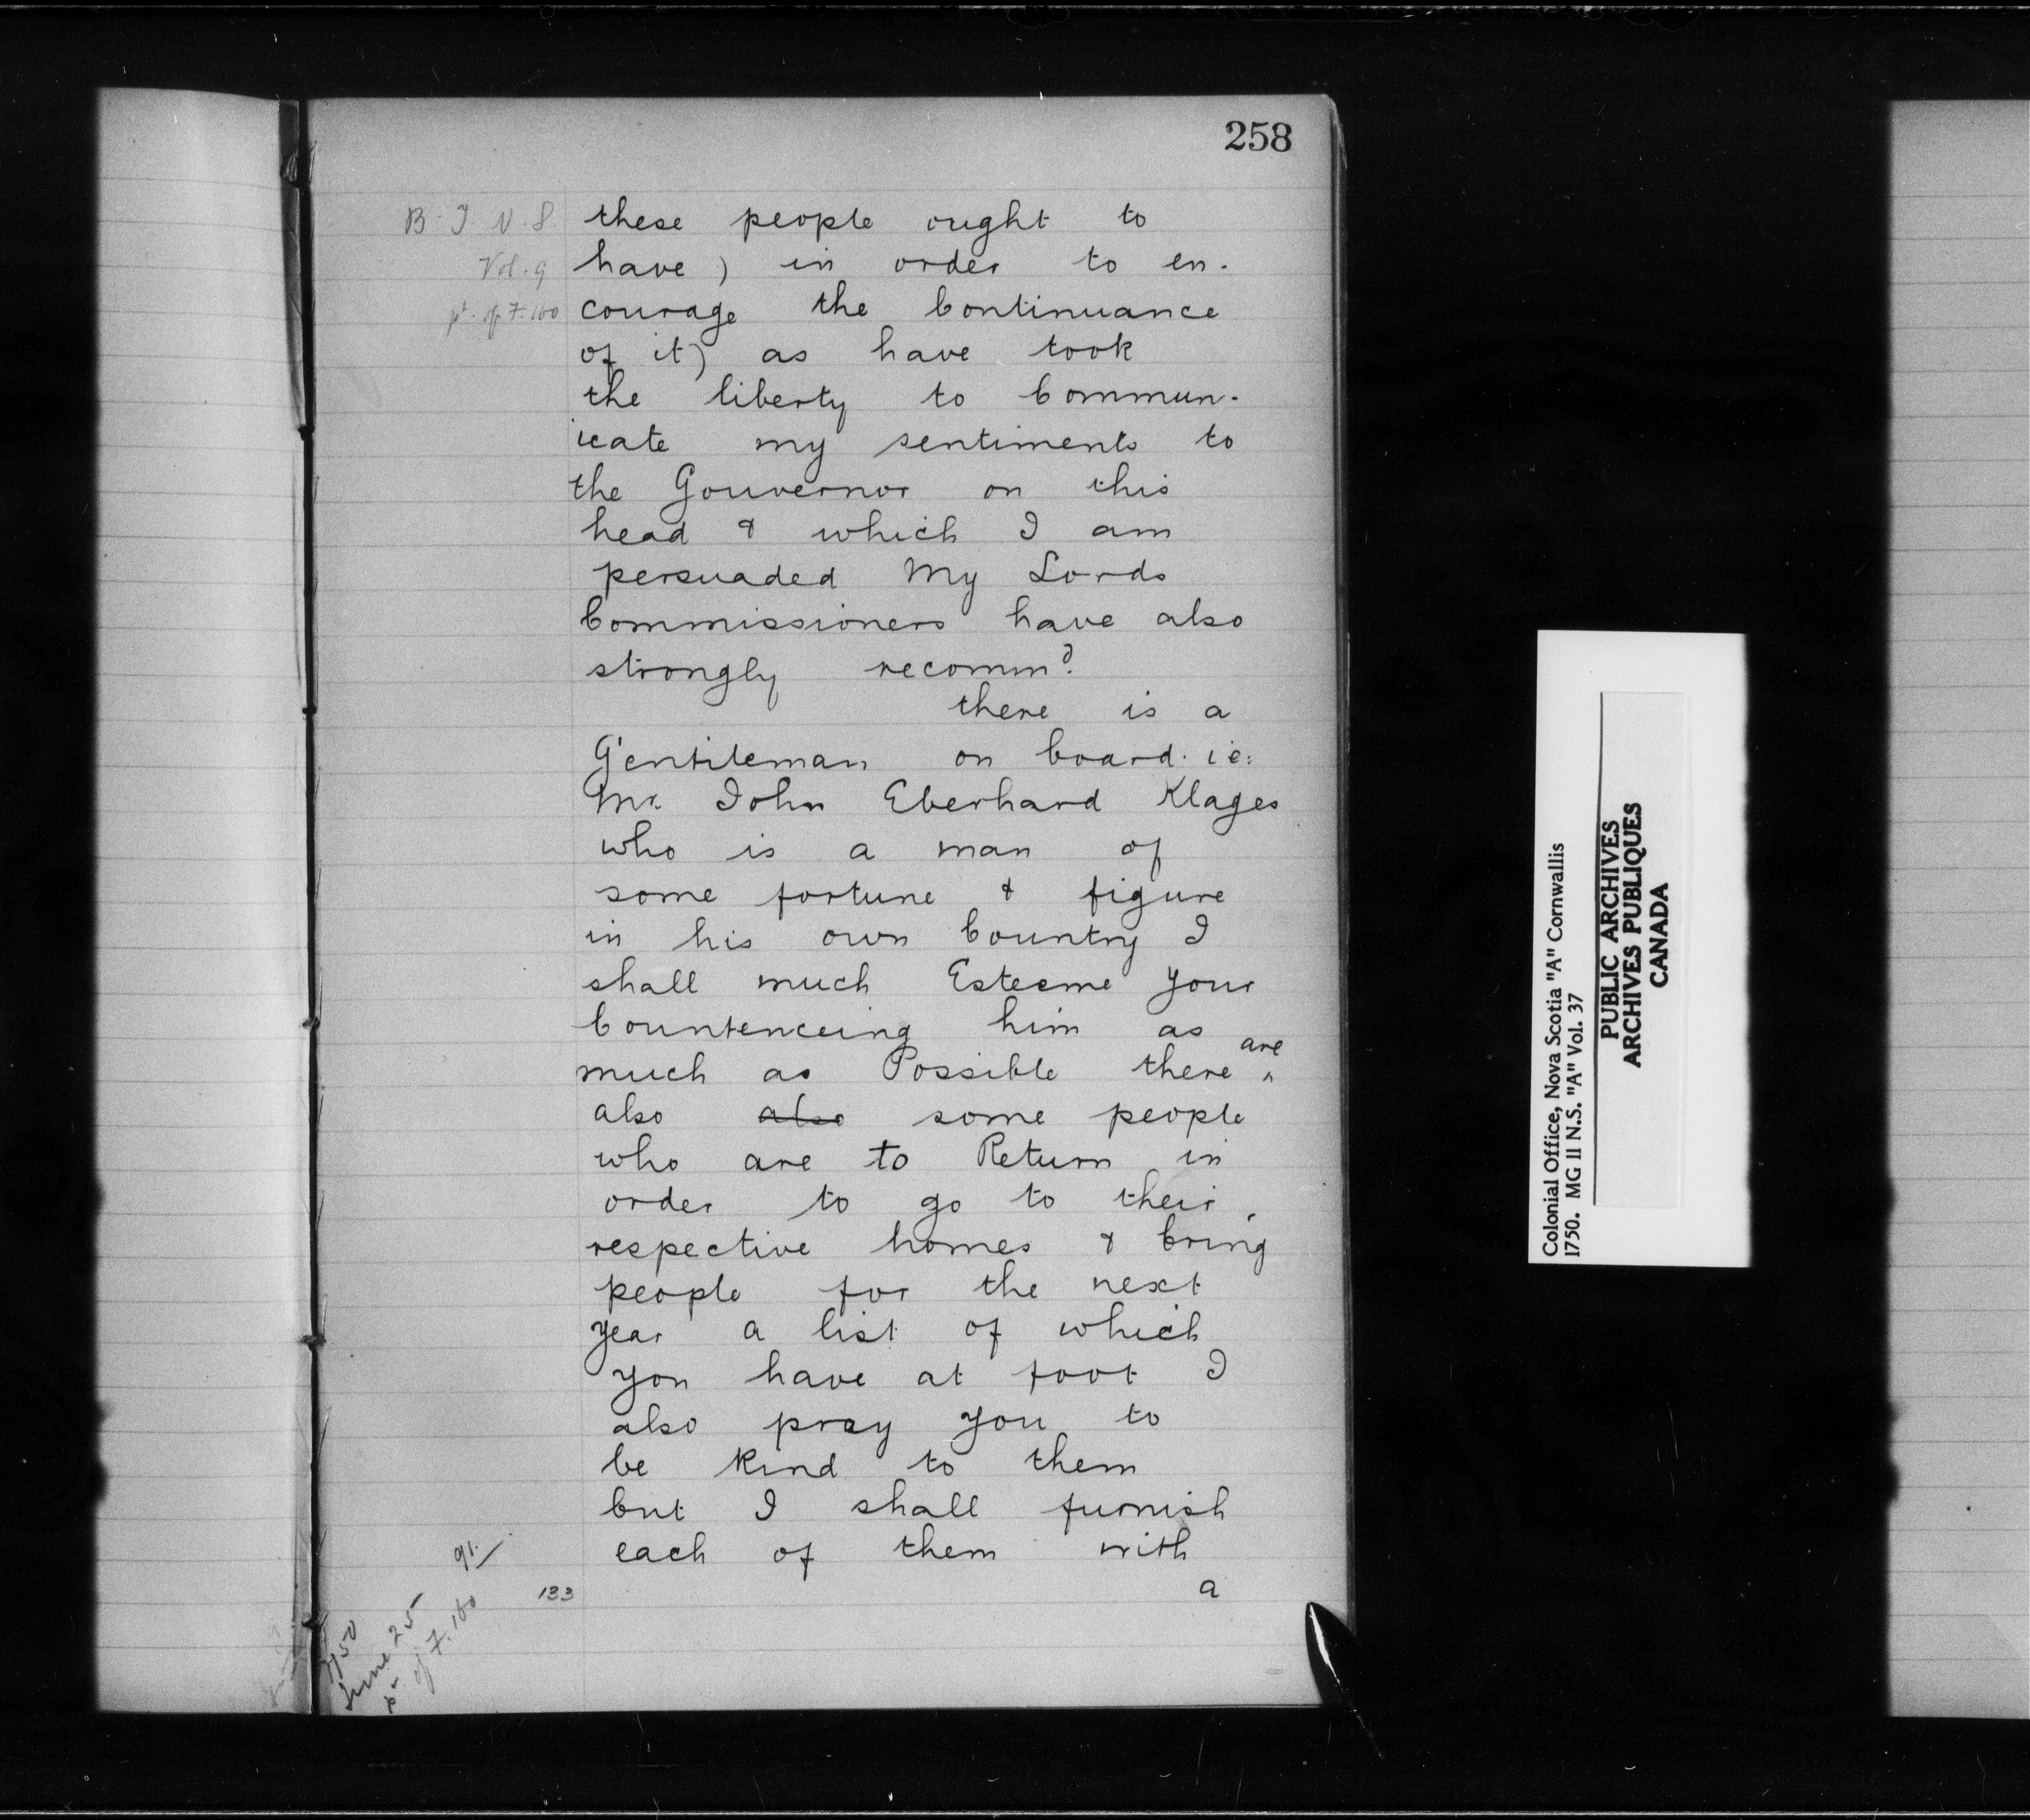 258
B. T. N. S.
Vol. 9
pt. of F. 160
these people ought to
have) in order to en-
courage the Continuance
of it) as have took
the liberty to Commun-
icate my sentiments to
the Gouvernor on this
head & which I am
persuaded My Lords
Commissioners have also
strongly recommd.
there is a
Gentileman on board. ie:
Mr. John Eberhard Klages
who is a man of
some fortune & figure
in his own Country I
shall much Esteeme your
Countenceing him as
much as Possible there ^ are
also also some people
who are to Return in
order to go to their
respective homes & bring
people for the next
year a list of which
you have at foot I
also pray you to
be kind to them
but I shall furnish
each of them with
a
133
91.
1750
June 25
pt of F. 160
Colonial Office, Nova Scotia "A" Cornwallis
1750. MG 11 N.S. "A" Vol. 37
PUBLIC ARCHIVES
ARCHIVES PUBLIQUES
CANADA